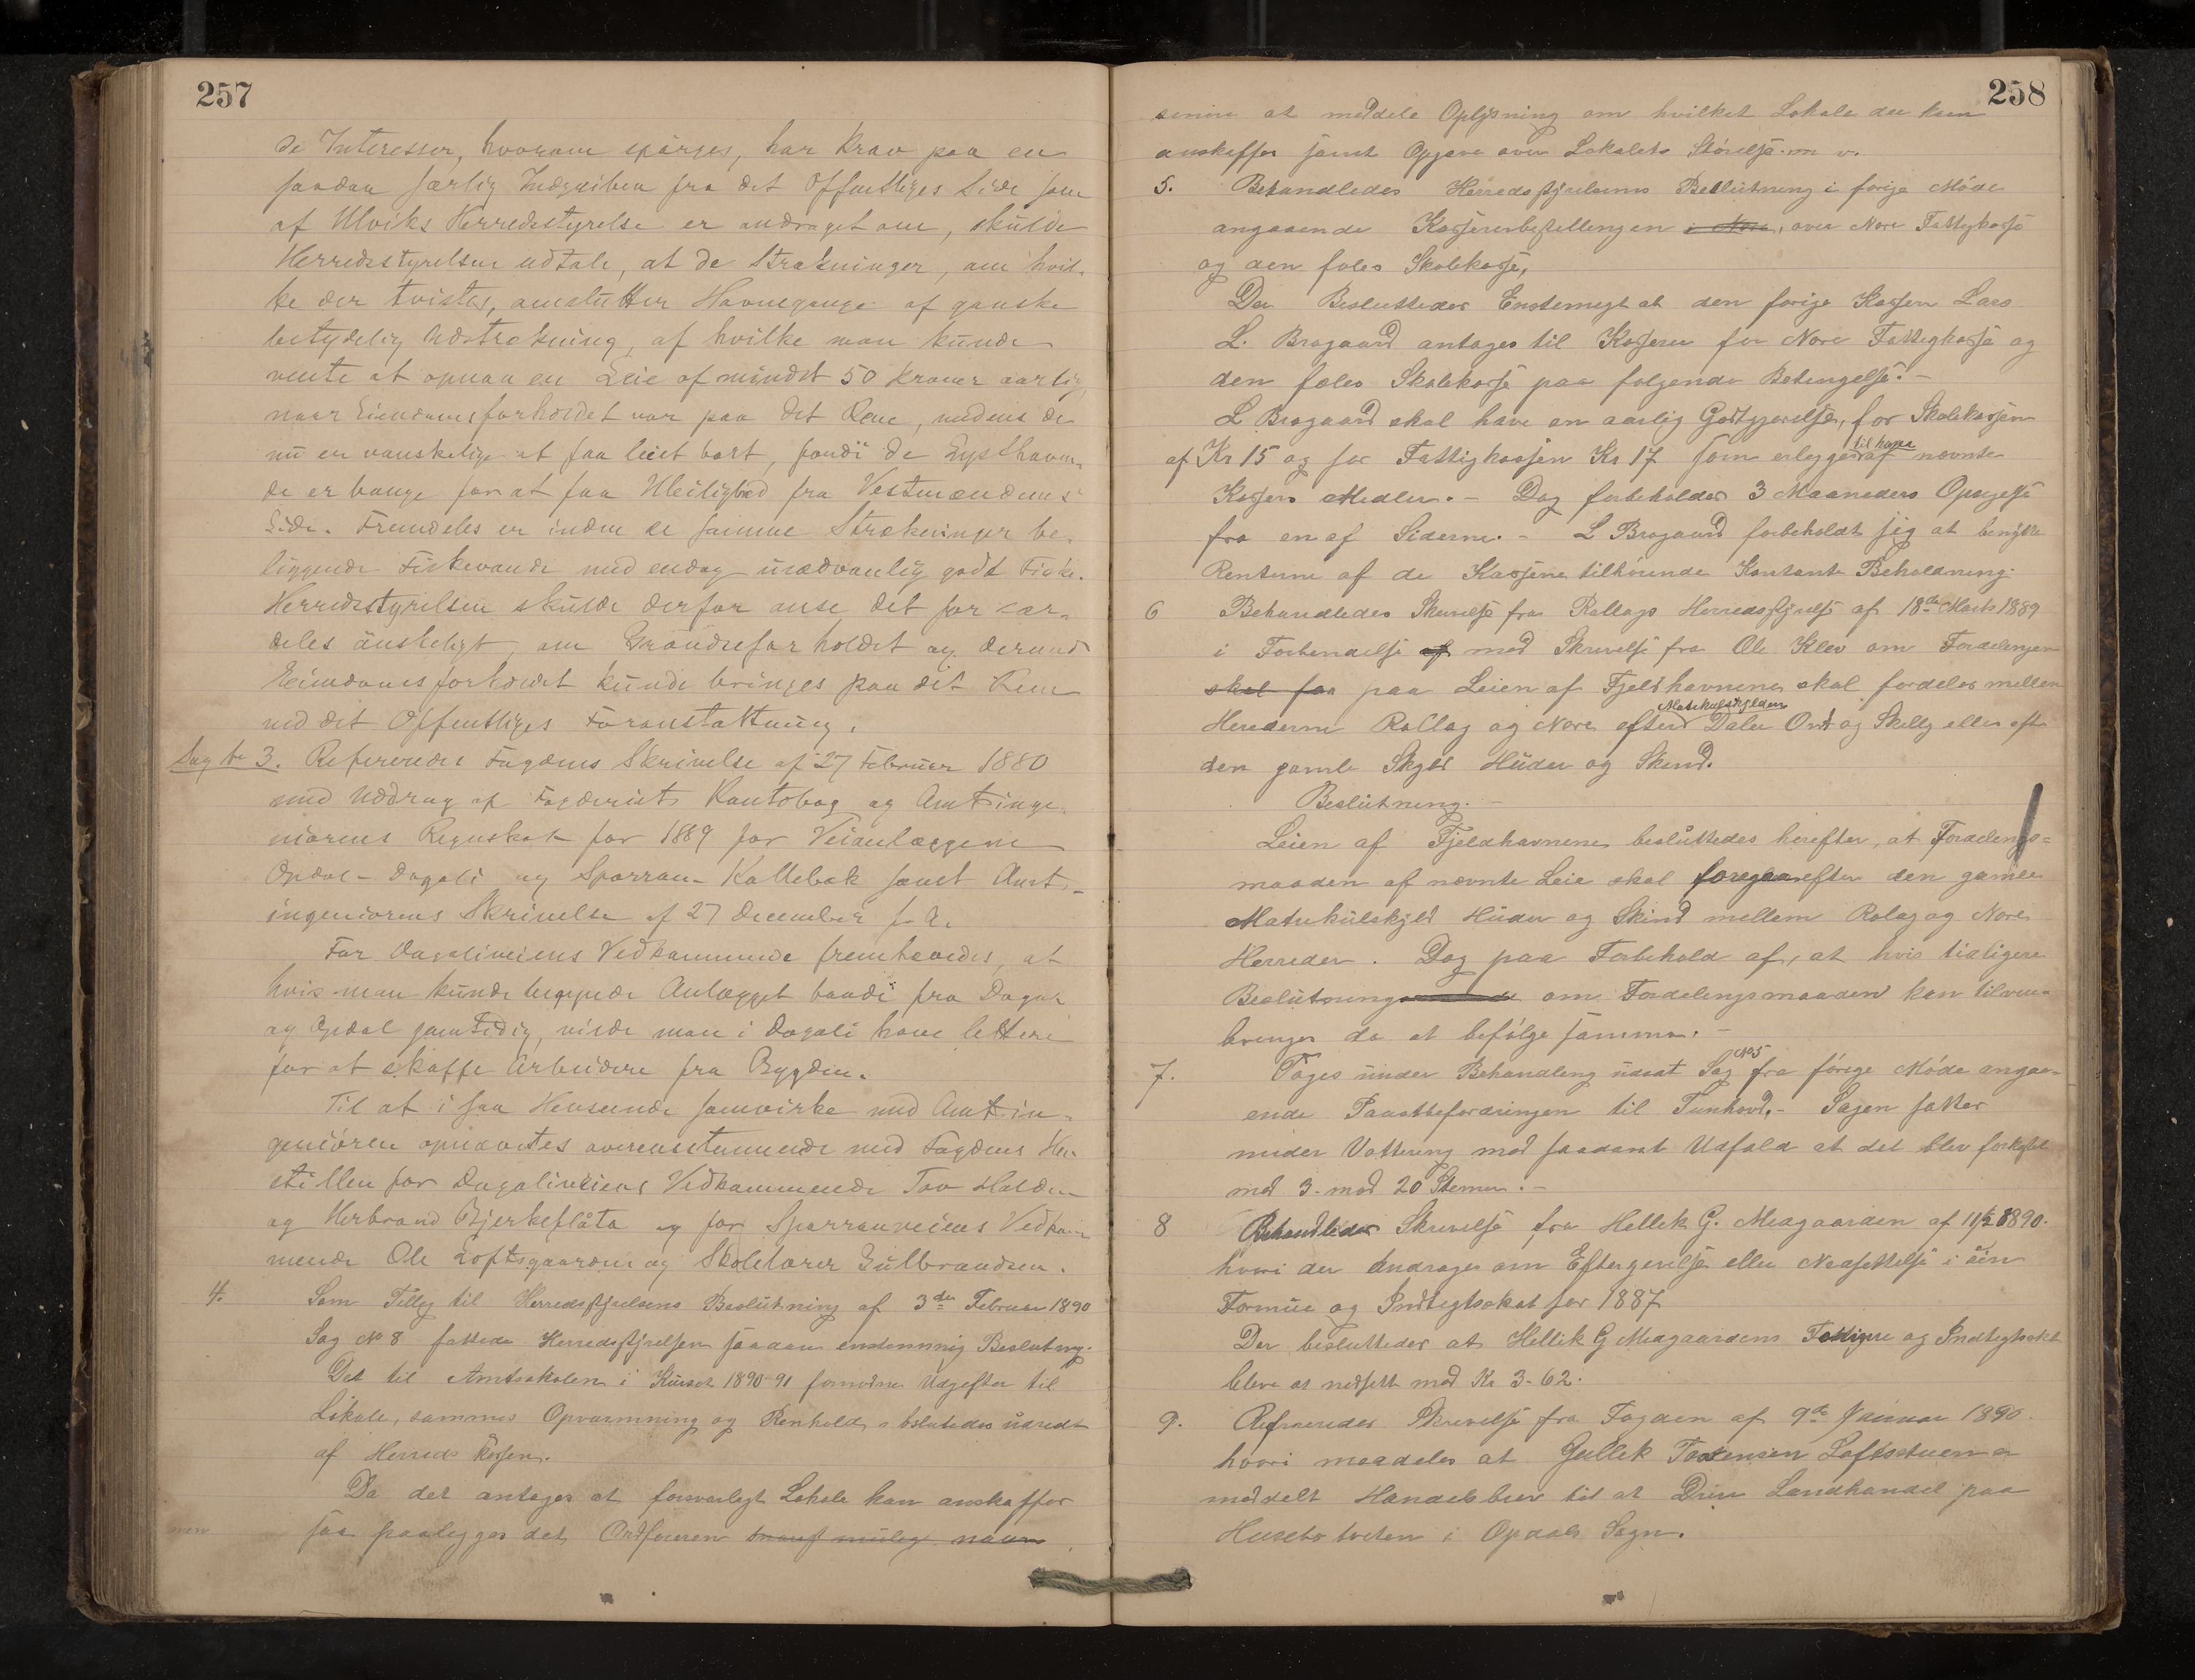 257
de Interesser, hvorom spörges, har Krav paa en
saadan særlig Indgriben fra det Offentliges Side som
af Ulviks Herredstyrelse er andraget om, skulde
Herredsstyrelsen udtale, at de Strækninger, om hvil-
ke der tvistes, omslutter Havnegange af ganske
betydelig Udstrækning, af hvilke man kunde
vente at opnaa en Leie af mindst 50 Kroner aarlig
naar Eiendomsforholdet var paa det Rene, medens de
nu er vanskelige at faa leiet bort, fordi de Lysthaven-
de er bange for at faa Uleilighed fra Vestmændenes
Side. Fremdeles er inden de samme Strækninger be-
liggende Fiskevande med endog usædvanlig godt Fiske.
Herredsstyrelsen skulde derfor anse det for sær-
deles önskeligt, om Grændseforholdet og derved
Eiendomsforholdet kunde bringes paa det Rene
ved det Offentliges Foranstaltning.
Sag № 3. Refereredes Fogdens Skrivelse af 27 Februar 1880
med Uddrag af Fogderiets Kontobog og Amtsinge-
niörens Regnskab for 1889 for Veianlæggene
Opdal-Dagali og Sporran-Kallebæk samt Amts-
ingeniörens Skrivelse af 27 December f. A.
For Dagaliveiens Vedkommende fremhævedes, at
hvis man kunde begynde Anlægget baade fra Dagali
og Opdal samtidig, vilde man i Dagali have lettere
for at skaffe Arbeidere fra Bygden.
Til at i saa Henseende samvirke med Amtsin-
geniören opnævntes overensstemmende med Fogdens Hen-
stillen for Dagaliveiens Vedkommende Tov Halden
og Herbrand Bjerkeflåta og for Sporranveiens Vedkom-
mende Ole Loftsgaarden og Skolelærer Gulbrandsen.
4. Som Tillæg til Herredsstyrelsens Beslutning af 3die Februar 1890
Sag № 8 fattede Herredsstyrelsen saadan enstemmig Beslutning.
Det til Amtsskolen i Kurset 1890-91 fornødne Udgifter til
Lokale, sammes Opvarmning og Renhold, besluttedes udredt
af Herreds kassen.
Da det antages at forsvarligt Lokale kan anskaffes
saa paalægges det Ordføreren snarest mulig
258
senere at meddele Oplysning om hvilket Lokale der kan
anskaffes samt Opgave over Lokalets Størrelse m v.
5. Behandledes Herredsstyrelsens Beslutning i forige Møde
angaaende Kassererbestillingen i Nore, over Nore Fattigkasse
og den fæles Skolekasse,
Der Besluttedes Enstemigt at den forige Kasserer Lars
L. Bragaard antages til Kasserer for Nore Fattigkasse og
den fæles Skolekasse paa følgende Betingelse. —
L Bragaard skal have en aarlig Godtgjørelse, for Skolekassen
af Kr 15 og for Fattigkassen Kr 17 som erlegges til ham af nævnte
Kassers Medler. — Dog forbeholdes 3 Maaneders Opsigelse
fra en af Siderne. — L Bragaard forbeholdt sig at benytte
Renterne af de Kasserne tilhørende Kontante Beholdning.
6 Behandledes Skrivelse fra Rollags Herredsstyrelse af 18de Marts 1889
i Forbindelse af med Skrivelse fra Ole Klev om Fordelingen
skal faa paa Leien af Fjeldhavnene skal fordeles mellem
Herederne Rollag og Nore efter Matrikulskylden Daler Ort og Skilling eller efter
den gamle Skyld Huder og Skind.
Beslutning. —
Leien af Fjeldhavnene besluttedes herefter, at Fordelings-
maaden af nævnte Leie skal foregaa efter den gamle
Matrikulskyld Huder og Skind mellem Rolag og Nore
Herreder. Dog paa Forbehold af, at hvis tidligere
Beslutning om Fordelingsmaaden kan tilveie-
bringes da at befølge samme. —
7. Toges under Behandling udsat Sag №5 fra forige Møde angaa-
ende Postbefordringen til Tunhovd. — Sagen sattes
under Vottering med saadant Udfald at det blev forkastet
med 3 mod 20 Stemer. —
8 Behandledes Skrivelse fra Hellek G. Medgaarden af 11/2 1890.
hvori der Andrages om Eftergivelse eller Nedsettelse i sin
Formue og Indtegtsskat for 1887
Der besluttedes at Hellik G Medgaardens Formue og Indtegtsskat
bleve at nedsett med Kr 3-62.
9. Refereredes Skrivelse fra Fogden af 9de Januar 1890.
hvori meddeles at Gullek Torstensen Loftsstuen er
meddelt Handelsbrev til at Drive Landhandel paa
Husebotveten i Opdals Sogn.